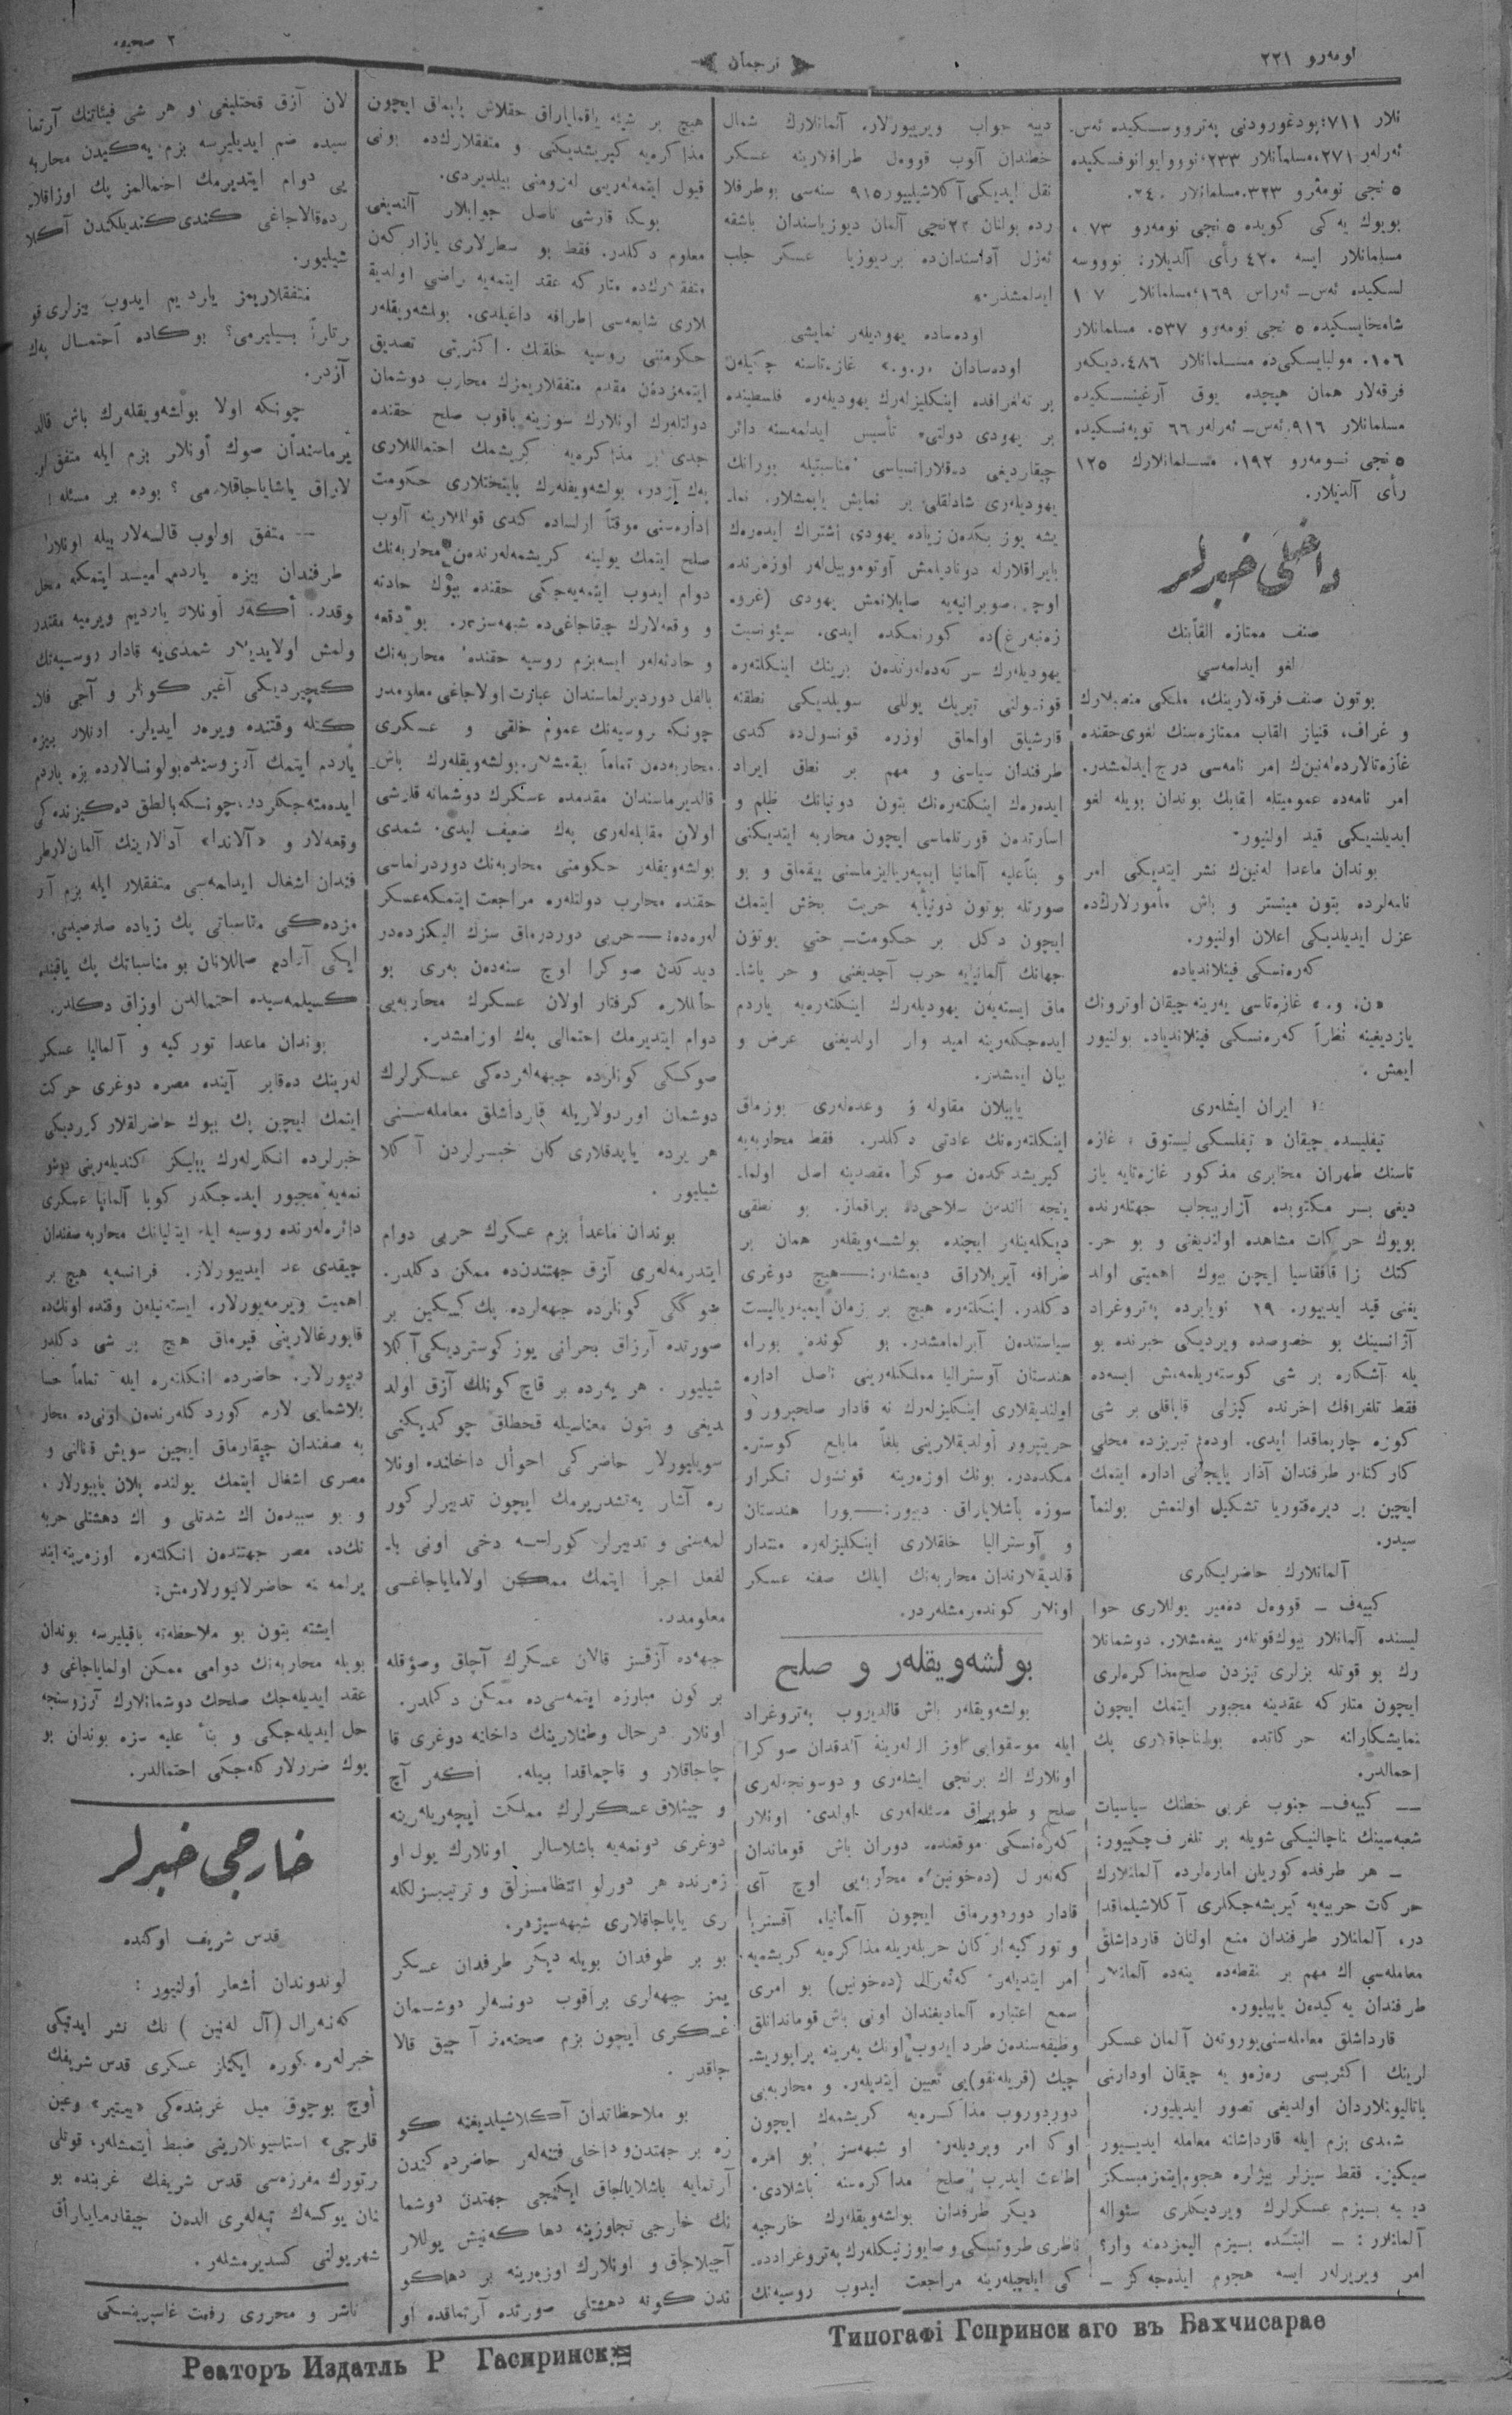 نومەرو ٢٢١
ترجمان
٢ صحیفە
نلار ٧١١؛ بودغورودنی پەتروو‌سکیدە ئەس-
ئەرلەر ٢٧١، مسلمانلار ٢٣٣؛ نوووایوانوفسکیدە
٥ نجی نومەرو ٣٢٣. مسلمانلار ٢٤٠.
بویوك یەکی کویدە ٥ نجی نومەرو ٧٣،
مسلمانلار ایسە ٤٢٠ رأی آلدیلار؛ نوووسە
لسکیدە ئەس-ئەراس ١٦٩، مسلمانلار ١٠٧
شامخایسکیدە ٥ نجی نومەرو ٥٣٧. مسلمانلار
١٠٦. مولبایسکی‌دە مسلمانلار ٤٨٦. دیکەر
فرقەلار همان هیچدە یوق آرغینسکیدە
مسلمانلار ٩١٦، ئەس-ئەرلەر ٦٦ توبەنسکیدە
٥ نجی نومەرو ١٩٢، مسلمانلارك ١٢٥
رأی آلدیلار.
داخلی خبرلر
صنف ممتازە القابنك
لغو ایدلمەسی
بوتون صنف فرقەلارینك، ملکی منصبلارك
و غراف، قنیاز القاب ممتازەسنك لغوی حقندە
غازەتالاردە لەنین‌ك امر نامەسی درج ایدلمشدر.
امر نامەدە عمومیتلە القابك بوندان بویلە لغو
ایدیلدیکی قید اولنیور.
بوندان ماعدا لەنین‌ك نشر ایتدیکی امر
نامەلردە بتون مینستر و باش مأمورلارك‌دە
عزل ایدیلدیکی اعلان اولنیور.
کەرەنسکی فینلاندیادە
«ن. و.» غازەتاسی یەرینە چیقان اوترونك
یازدیغینە نظراً کەرەنسکی فینلاندیادە بولنیور
ایمش.
ایران ایشلەری
تیفلیسدە چیقان «تیفلسکی لیستوق» غازە
تاسنك طهران مخابری مذکور غازەتایە یاز
دیغی بر مکتوبدە آزاربیجان جهتلەرندە
بویوك حرکات مشاهدە اولندیغنی و بو حر-
کتك زاقافقاسیا ایچن بیوك اهمیتی اولد
یغنی قید ایدییور. ١٩ نویابردە پەتروغراد
آژانسینك بو خصوصدە ویردیکی خبرندە بو
یلە آشکارە بر شی کوستەریلمەمش ایسەدە
فقط تلغرافك اخرندە کیزلی قاباقلی بر شی
کوزە چارپماقدا ایدی. اودە؛ تبریزدە محلی
کارکنلر طرفندان آذار بایجانی ادارە ایتمك
ایچین بر دیرەقتوریا تشکیل اولنمش بولنما
سیدر.
آلمانلارك حاضرلیکاری
کییەف - قووەل دەمیر یوللاری حوا
لیسندە آلمانلار بیوك قوتلەر ییغمشلار. دوشمانلا
رك بو قوتلە بزلری تیزدن صلح مذاکرەلری
ایچون متارکە عقدینە مجبور ایتمك ایچون
نمایشکارانە حرکاتدە بولناجاقلاری پك
احمالدر.
— کییەف- جنوب غربی خطنك سیاسیات
شعبەسینك ناچالنیکی شویلە بر تلغرف چکییور:
- هر طرفدە کوریلن امارەلردە آلمانلارك
حرکات حربیەیە کیریشەجکلری آکلاشیلماقدا
در، آلمانلار طرفندان منع اولنان قارداشلق
معاملەسی اك مهم بر نقطەدە ینەدە آلمانلار
طرفندان یەکیدەن یاپیلیور.
قارداشلق معاملەسنی یوروتەن آلمان عسکر
لرینك اکثریسی رەزەو یە چیقان اودارنی
باتالیونلاردان اولدیغی تصور ایدیلیور.
شمدی بزم ایلە قارداشانە معاملە ایدییور
سیکیز. فقط سیزلر بیزلرە هجوم ایتمزمیسکز
دییە بیزم عسکرلرك ویردیکلری سئوالە
آلمانلار: - البتدە بیزم الیمزدەنە وار؟
امر ویریرلەر ایسە هجوم ایدەجەکز -
دییە جواب ویرییورلار. آلمانلارك شمال
خطندان آلوب قووەل طرافلارینە عسکر
نقل ایدیکی آکلاشیلییور ٩١٥ سنەسی بوطرفلا
ردە بولنان ٢٢ نجی آلمان دیوزیاسندان باشقە
ئەزل آدلسندان‌دە بر دیوزیا عسکر جلب
ایدلمشدر.
اودەسادە یهودیلەر نمایشی
اودەسادان «ر.و.» غازەتاسنە چکیلەن
بر تەلغرافدە اینکلیزلەرك یهودیلەرە فلسطیندە
بر یهودی دولتی تأسیس ایدلمەسنە دائر
چیقاردیغی دەقلاراتسیاسی مناسبتیلە بورانك
یهودیلەری شادلقلی بر نمایش یاپمشلار. نما-
یشە یوز بیکدەن زیادە یهودی اشتراك ایدەرەك
بایراقلارلە دوناديلمش آوتوموبیل‌لەر اوزەرندە
اوچ صوبرانیەیە صایلانمش یهودی (غروە
زەنبەرغ)دە کورنمکدە ایدی. سیئونیست
یهودیلەرك سرکردەلەرندەن بیرینك اینکلتەرە
قونسولنی تبریك یوللی سویلدیکی نطقنە
قارشیلق اولماق اوزرە قونسول‌دە کندی
طرفندان سیاسی و مهم بر نطق ایراد
ایدەرەك اینکلتەرەنك بتون دونیانك ظلم و
اسارتدەن قورتلماسی ایچون محاربە ایتدیکنی
و بناعلیە آلمانیا ایمپەریالیزماسنی ییقماق و بو
صورتلە بوتون دونیایە حریت بخش ایتمك
ایچون دکل بر حکومت- حتی بوتون
جهانك آلمانیایە حرب آچدیغنی و حر یاشا-
ماق ایستەیەن یهودیلەرك اینکلتەرەیە یاردم
ایدەجکلەرینە امید وار اولدیغنی عرض و
بیان ایتمشدر.
یاپیلان مقاولە و وعدەلەری بوزماق
اینکلتەرەنك عادتی دکلدر. فقط محاربەیە
کیریشدکدەن صوکرا مقصدینە اصل اولما-
ینجە الندەن سلاحی‌دە براقماز. بو نطقی
دیکلەینلەر ایچندە بولشەویقلەر همان بر
طرافە آیریلاراق دیمشلەر: — هیچ دوغری
دکلدر. اینکلتەرە هیچ بر زمان ایمپەریالیست
سیاستندەن آیرلمامشدر. بو کوندە بورا،
هندستان آوسترالیا مملکتلەرینی ناصل ادارە
اولندیقلاری اینکلیزلەرك نە قادار صلحپرور و
حریتپرور اولدیقلارینی بلغاً مابلغ کوستر-
مکدەدر. بونك اوزەرینە قونسول تکرار
سوزە باشلایاراق دییور: — بورا هندستان
و آوسترالیا خلقلاری اینکلیزلەرە منتدار
قالدیقلارندان محاربەنك ایلك صفنە عسکر
اونلار کوندەرمشلەردر.
بولشەویقلەر و صلح
بولشەویقلەر باش قالدیروب پەتروغراد
ایلە موسقوایی اوز اللەرینە آلدقدان صوکرا
اونلارك اك برنجی ایشلەری و دوسونجەلەری
صلح و طوپراق مسئلەلەری اولدی. اونلار
کەرەنسکی موقعندە دوران باش قوماندان
کەنەرل (دەخونین)ە محاربەیی اوچ آی
قادار دوردورماق ایچون آلمانیا، آفستریا
و تورکیە ارکان حربلەریلە مذاکرەیە کریشمەیە
امر ایتدیلەر. کەنەرال (دەخونین) بو امری
سمع اعتبارە آلمادیغندان اونی باش قوماندانلق
وظیفەسندەن طرد ایدوب اونك یەرینە پراپوریش-
چیك (قریلەنقو)یی تعیین ایتدیلەر. و محاربەیی
دوردوروب مذاکرەیە کریشمەك ایچون
اوکا امر ویردیلەر. او شبهەسز بو امرە
اطاعت ایدرب صلح مذاکرەسنە باشلادی.
دیکر طرفدان بولشەویقلەرك خارجیە
ناظری طروتسکی و صایوزنیکلەرك پەتروغراددە-
کی ایلچیلەرینە مراجعت ایدوب روسیەنك
هیچ بر شیئە باقمایاراق حقلاش یاپماق ایچون
مذاکرەیە کیریشدیکنی و متفقلارك‌دە بونی
قبول ایتمەلەریی لەزومنی بیلدیردی.
بوکا قارشی ناصل جوابلار آلندیغی
معلوم دکلدر. فقط بو سطرلاری یازارکەن
متفقلارك‌دە متارکە عقد ایتمەیە راضی اولدیق
لاری شایعەسی اطرافە داغیلدی. بولشەویقلەر
حکومتنی روسیە خلقنك اکثریتی تصدیق
ایتمەزدەن مقدم متفقلاریمزك محارب دوشمان
دولتلەرك اونلارك سوزینە باقوب صلح حقندە
جدی بر مذاکرەیە کریشمك احتماللاری
پەك آزدر، بولشەویقلەرك پایتختلاری حکومت
ادارەسنی موقتاً اولسادە کندی قوللارینە آلوب
صلح ایتمك یولینە کریشمەلەرندەن محاربەنك
دوام ایدوب ایتمەیەجکی حقندە بیوك حادثە
و وقعەلارك چیقاجاغی‌دە شبهەسزدر. بو وقعە
و حادثەلەر ایسە بزم روسیە حقندە محاربەنك
بالفعل دوردیرلماسندان عبارت اولاجاغی معلومدر
چونکە روسیەنك عموم خلقی و عسکری
محاربەدەن تماماً بیقمشلار. بولشەویقلەرك باش-
قالدیرماسندان مقدمدە عسکرك دوشمانە قارشی
اولان مقابلەلەری پەك ضعیف ایدی. شمدی
بولشەویقلەر حکومتی محاربەنك دوردرلماسی
حقندە محارب دولتلەرە مراجعت ایتمکە عسکر
لەرەدە: — حربی دوردرماق سزك الیکزدەدر
دیدکدن صوکرا اوچ سنەدەن بەری بو
حاللارە کرفتار اولان عسکرك محاربەیی
دوام ایتدیرمك احتمالی پەك اوزامشدر.
صوکی کونلاردە جبهەلەردەکی عسکرلرك
دوشمان اوردولاریلە قارداشلق معاملەسنی
هر یردە یاپدقلاری کلن خبرلردن آکلا
شیلیور.
بوندان ماعدا بزم عسکرك حربی دوام
ایتدرمەلەری آزق جهتندن‌دە ممکن دکلدر.
صوکی کونلاردە جبهەلردە پك کسکین بر
صورتدە آرزاق بحرانی یوز کوستردیکی آکلا
شیلیور. هر یەردە بر قاچ کونلك آزق اولد
یدیغی و بتون معناسیلە قحطلق چوکدیکنی
سویلیورلار حاضرکی احوال داخلندە اونلا
رە آشار یەتشدیرمك ایچون تدبیرلر کور
لمەسنی و تدبیرلر کورلسە دخی اونی با-
لفعل اجرا ایتمك ممکن اولمایاجاغی
معلومدر.
جبهەدە آزقسز قالان عسکرك آچلق وصوقلە
بر کون مبارزە ایتمەسی‌دە ممکن دکلدر.
اونلار درحال وطنلارینك داخلنە دوغری قا
چاجاقلار و قاچماقدا بیلە. اکەر آچ
و چپلاق عسکرلرك مملکت ایچەریلەرینە
دوغری دونمەیە باشلاسالر اونلارك یول او
زەرندە هر دورلو انتظامسزلق و ترتیبسزلکلە
ری یاپاجاقلاری شبهەسیزدر.
بو بر طرفدان بویلە دیکر طرفدان عسکر
یمز جبهەلری براقوب دونسەلر دوشمان
عسکری ایچون بزم صحنەمز آچیق قالا
جاقدر.
بو ملاحظاتدان آکلاشیلدیغینە کو
رە بر جهتدن داخلی فتنەلر حاضردە کندن
آرتمایە باشلایاجاق ایکنجی جهتدن دوشما
نك خارجی تجاوزینە دها کەنیش یوللار
آچیلاجاق و اونلارك اوزەرینە بر دهاکو
ندن کونە دهشتلی صورتدە آرتماقدە او
لان آزق قحتلیغی و هر شی فیئاتنك آرتما
سیدە ضم ایدیلیرسە بزم یەکیدن محاربە
یی دوام ایتدیرمك احتمالمز پك اوزاقلا
ردەقالاجاغی کندی کندیلکندن آکلا
شیلیور.
متفقلاریمز یاردیم ایدوب بیزلری قو
رتارا بیلیرمی؟ بوکادە احتمال پەك
آزدر.
چونکە اولا بولشەویقلەرك باش قالد
یرماسندان صوك اونلار بزم ایلە متفق او
لاراق یاشایاجاقلارمی؟ بودە بر مسئلە!
— متفق اولوب قالسەلار بیلە اونلار
طرفندان بیزە یاردم امید ایتمکە محل
یوقدر. اکەر اونلار یاردیم ویرمیە مقتدر
اولمش اولایدیلار شمدی‌یە قادار روسیەنك
کچیردیکی آغیر کونلر و آجی فلا
کتلە وقتندە ویرەر ایدیلر. اونلار بیزە
یاردم ایتمك آرزوسندە بولونسالاردە بزە یاردم
ایدەمیەجکلردر، چونکە بالطق دەکیزندەکی
وقعەلار و «آلاندا» آدالارینك آلمان‌لارطر
فندان اشغال ایدلمەسی متفقلار ایلە بزم آر
مزدەکی مناسباتی پك زیادە صارصیدی.
ایکی آرادە صاللانان بو مناسباتك پك یاقیندە
کسیلمەسیدە احتمالدن اوزاق دکلدر.
بوندان ماعدا تورکیە و آلمانیا عسکر
لەرینك دەقابر آیندە مصرە دوغری حرکت
ایتمك ایچن پك بیوك حاضرلقلار کوردیکی
خبرلردە انکلزلەرك بیلیکز کندیلەرینی دوشو
نمەیە مجبور ایدەجکدر کویا آلمانیا عسکری
دائرەلەرندە روسیە ایلە ایتالیانك محاربە صفندان
چیقدی عد ایدییورلار. فرانسەیە هیچ بر
اهمیت ویرمەیورلار. ایستەنیلەن وقتدە اونك‌دە
قابورغالارینی قیرماق هیچ بر شی دکلدر
دییورلار. حاضردە انکلتەرە ایلە تماماً حسا
بلاشمایی لازم کوردکلەرندەن اونی‌دە محار
بە صفندان چیقارماق ایچین سویش قنالنی و
مصری اشغال ایتمك یولندە پلان یاپیورلار.
و بو سببدەن اك شدتلی و اك دهشتلی حربە
نك‌دە مصر جهتندەن انکلتەرە اوزەرینە ایند
یرلمەسنە حاضرلانیورلارمش:
ایشتە بتون بو ملاحظەلە باقیلیرسە بوندان
بویلە محاربەنك دوامی ممکن اولمایاجاغی و
عقد ایدیلەجك صلحك دوشمانلارك آرزوسنجە
حل ایدیلەجکی و بناً علیە سزە بوندان بو
یوك ضررلار کلەجکی احتمالدر.
خارجی خبرلر
قدس شریف اوکندە
لوندوندان اشعار اولنیور:
کەنەرال (آل لەنبی) نك نشر ایتدیکی
خبرلەرە کورە ایکلیز عسکری قدس شریفك
اوچ بوچوق میل غربندەکی «بیتیر» وعین
قارچی» استاسیونلارینی ضبط ایتمشلەر، قوتلی
رتورك مفرزەسی قدس شریفك غربندە بو
نان یوکسەك تپەلەری الدن چیقادمایاراق
شهر یولنی کسدیرمشلەر.
ناشر و محرری رفعت غاسپرینسکی
Типогафі Гспринск аго въ Бахчисарае
Реаторъ Издатль Р Гаснринскій